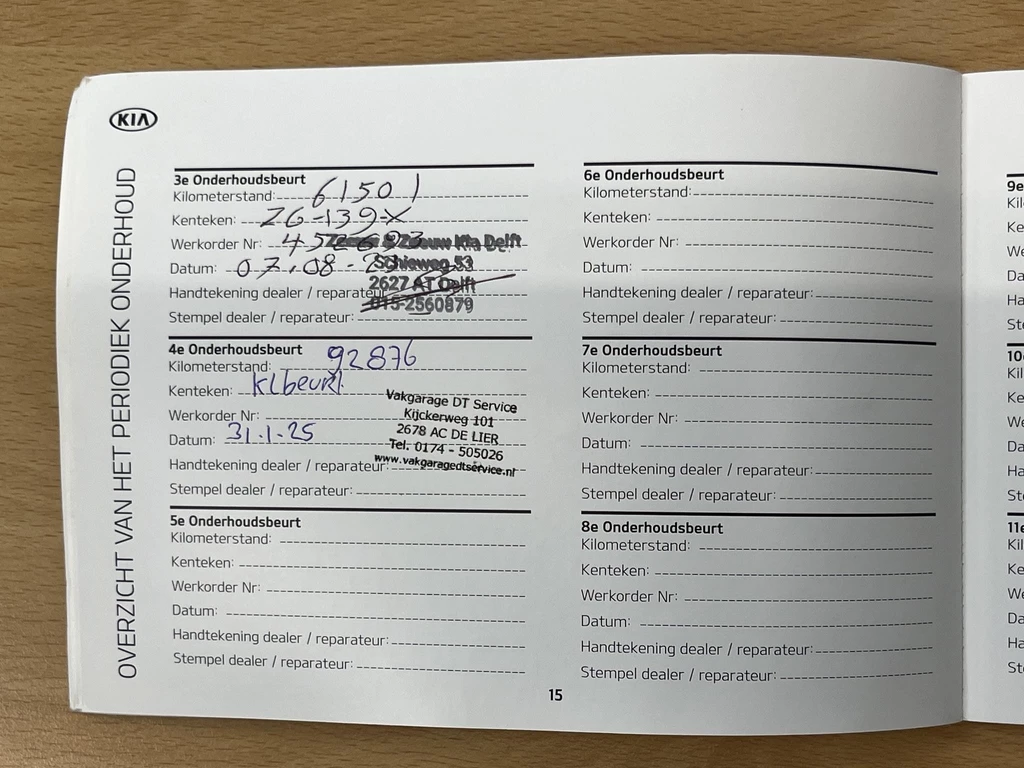 KIA
OVERZICHT VAN HET PERIODIEK ONDERHOUD
3e Onderhoudsbeurt
Kilometerstand: 61501
Kenteken: ZG-139-X
Werkorder Nr:
Zeeuw & Zeeuw Kia Delft
Datum: 07.08-
Schieweg 53
Handtekening dealer / reparateur:
2627 AT Delft
Stempel dealer / reparateur:
015-2560879
4e Onderhoudsbeurt
Kilometerstand: 92876
Kenteken: klbeurt
Werkorder Nr:
Datum: 31.1.25
Handtekening dealer / reparateur:
Stempel dealer / reparateur:
Vakgarage DT Service
Kijckerweg 101
2678 AC DE LIER
Tel. 0174 - 505026
www.vakgaragedtservice.nl
5e Onderhoudsbeurt
Kilometerstand:
Kenteken:
Werkorder Nr:
Datum:
Handtekening dealer / reparateur:
Stempel dealer / reparateur:
6e Onderhoudsbeurt
Kilometerstand:
Kenteken:
Werkorder Nr:
Datum:
Handtekening dealer / reparateur:
Stempel dealer / reparateur:
7e Onderhoudsbeurt
Kilometerstand:
Kenteken:
Werkorder Nr:
Datum:
Handtekening dealer / reparateur:
Stempel dealer / reparateur:
8e Onderhoudsbeurt
Kilometerstand:
Kenteken:
Werkorder Nr:
Datum:
Handtekening dealer / reparateur:
Stempel dealer / reparateur:
15
9e
Kil
Ke
We
Da
Ha
Ste
10
Kil
Ke
We
Da
Ha
Ste
11e
Kil
Ke
We
Da
Ha
Ste